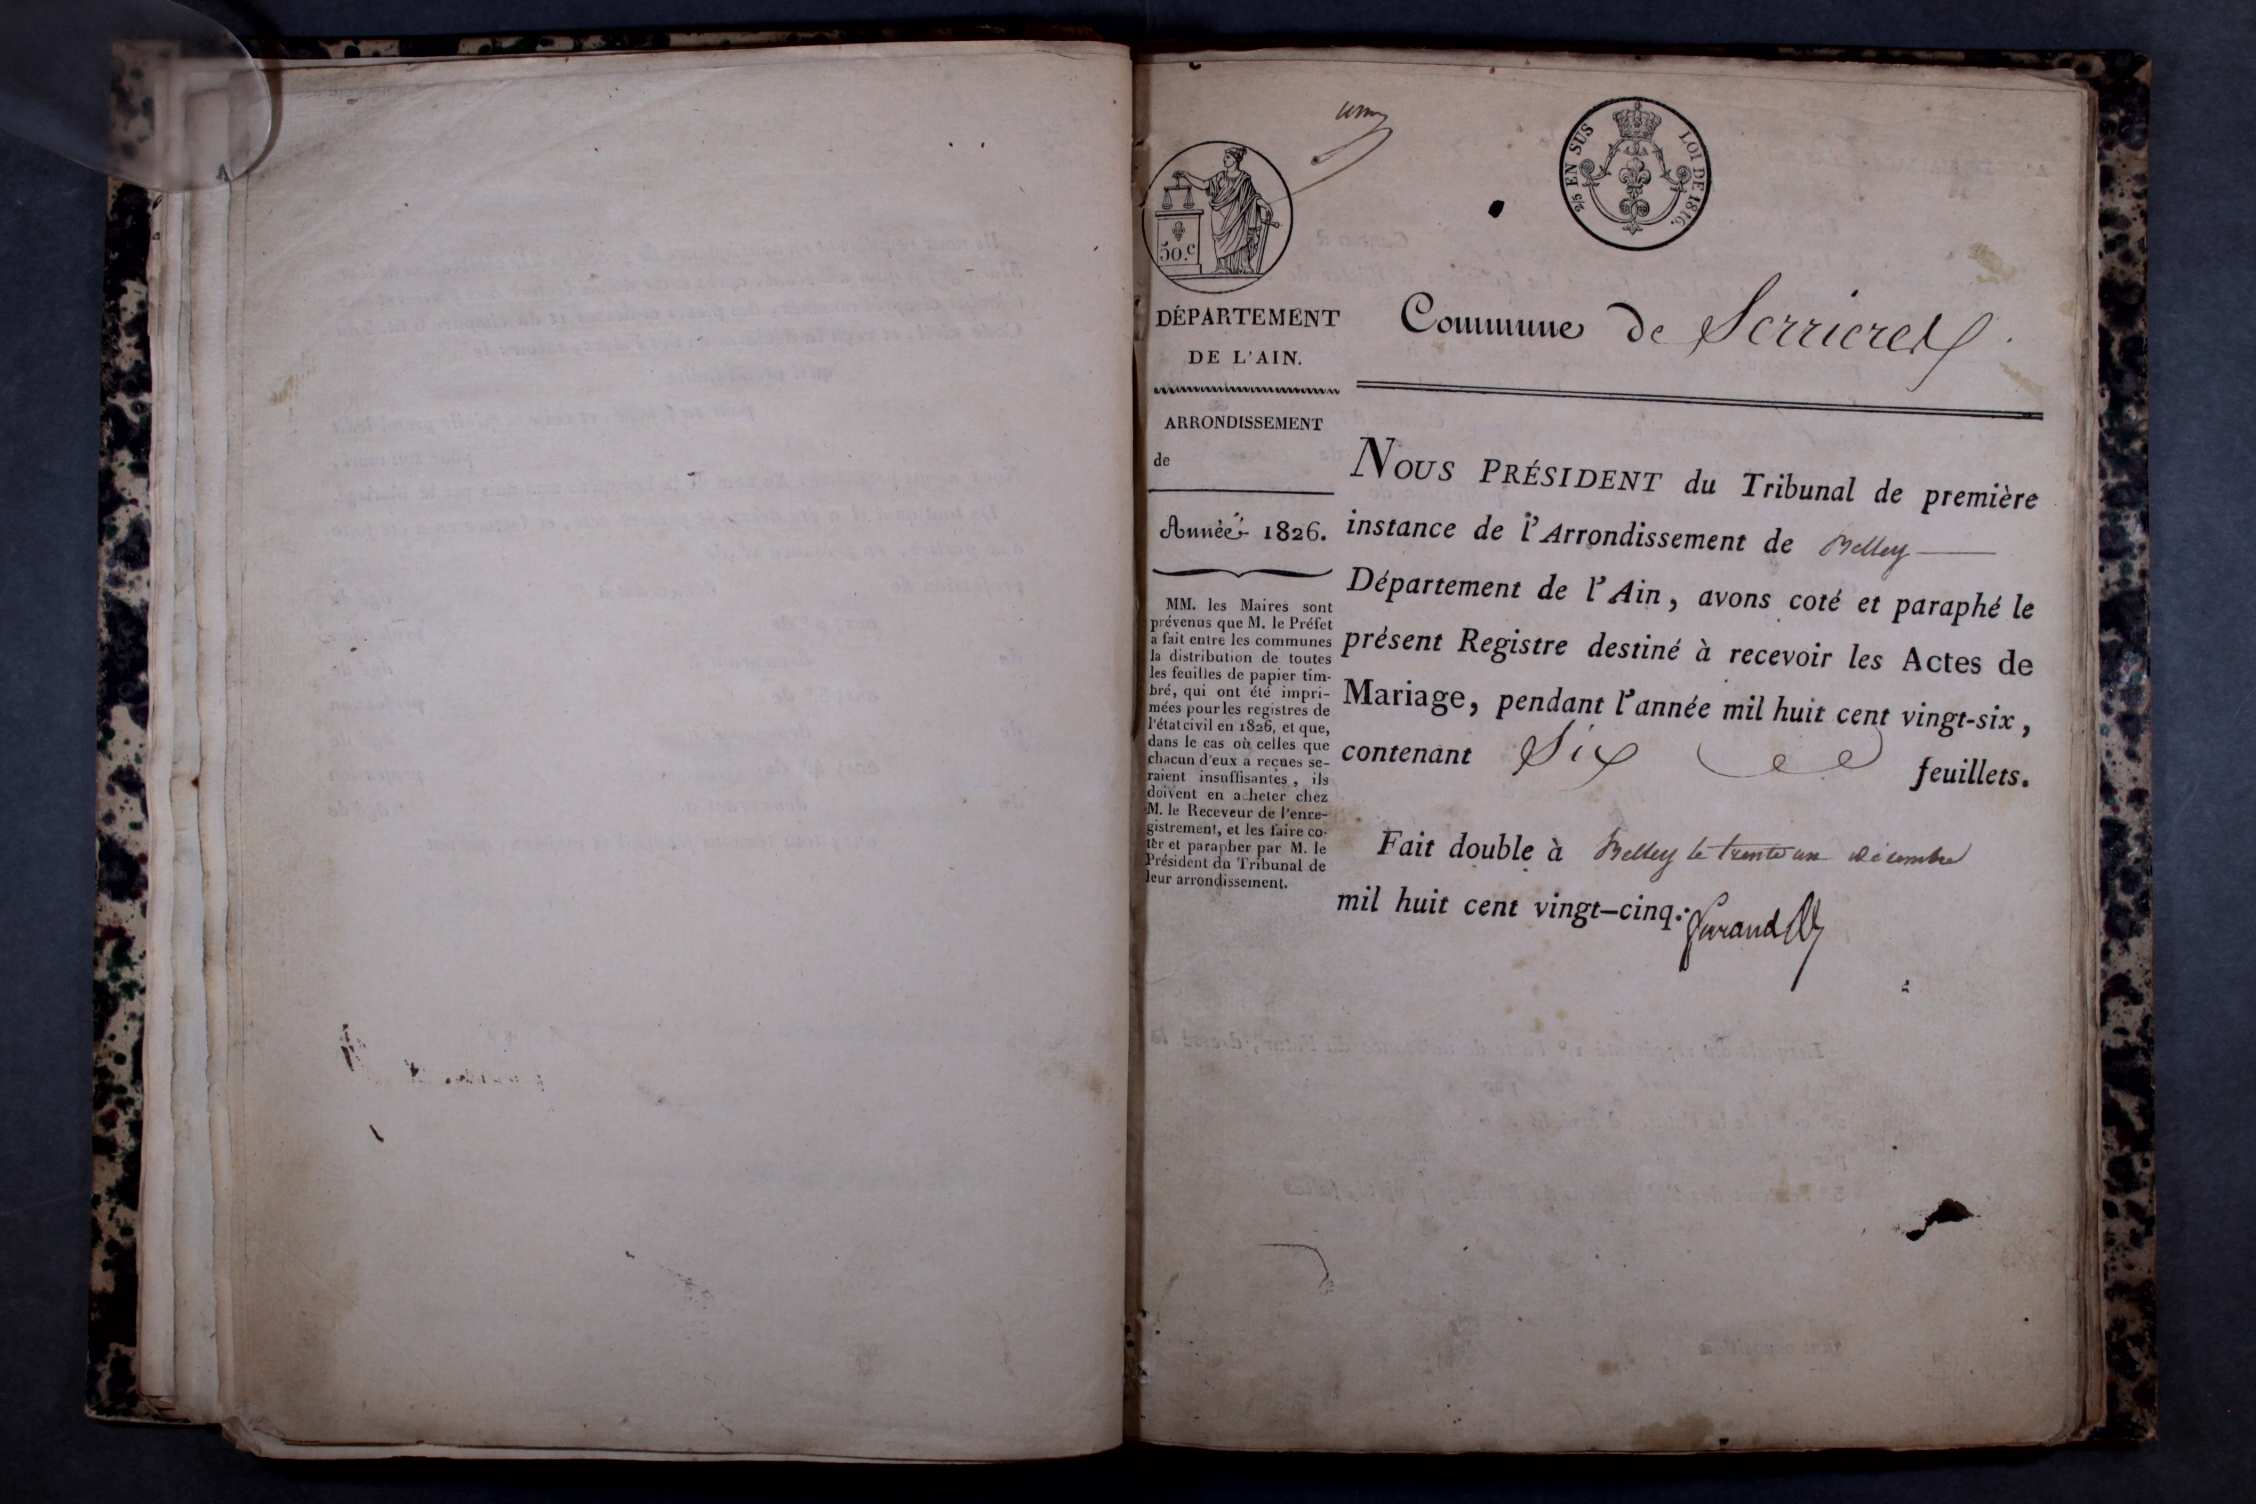 50.c
25 EN SUS LOI DE 1816.
DÉPARTEMENT
DE L'AIN.
ARRONDISSEMENT
de
Année 1826.
MM. les Maires sont
prévenus que M. le Préfet
a fait entre les communes
la distribution de toutes
les feuilles de papier tim-
bré, qui ont été impri-
mées pour les registres de
l'état civil en 1826, et que,
dans le cas où celles que
chacun d'eux a reçues se-
raient insuffisantes, ils
doivent en acheter chez
M. le Receveur de l'enre-
gistrement, et les faire co-
ter et parapher par M. le
Président du Tribunal de
leur arrondissement.
Commune de Serrieres
NOUS PRÉSIDENT du Tribunal de première
instance de l'Arrondissement de Belley
Département de l'Ain, avons coté et paraphé le
présent Registre destiné à recevoir les Actes de
Mariage, pendant l'année mil huit cent vingt-six,
contenant Six feuillets.
Fait double à Belley le trente un décembre
mil huit cent vingt-cinq.